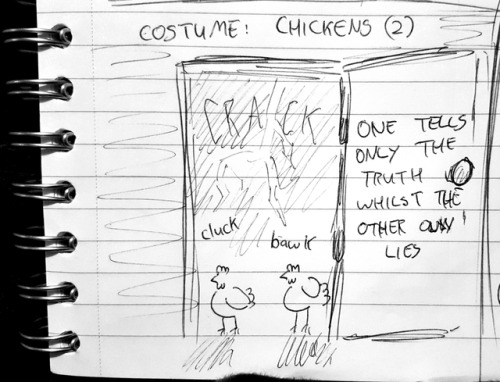 COSTUME: CHICKENS (2)
CRACK
cluck
bawk
ONE TELLS
ONLY THE
TRUTH
WHILST THE
OTHER ONLY
LIES